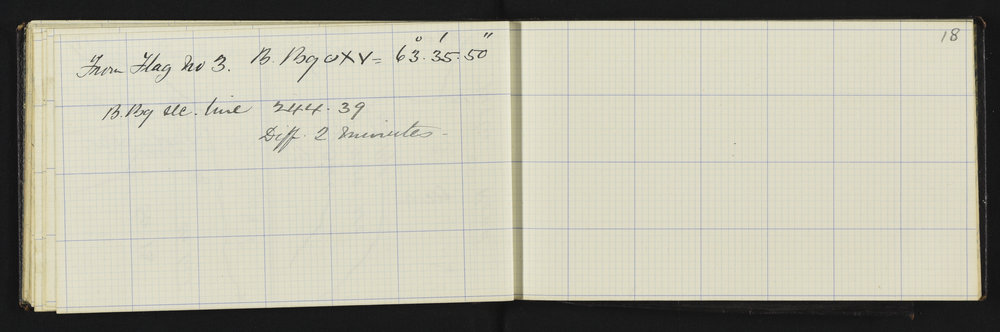 From Flag No 3. B. Bg OXV = 63° 35' 50"
B. Bg sec. line 244. 39
Diff. 2 minutes -
18